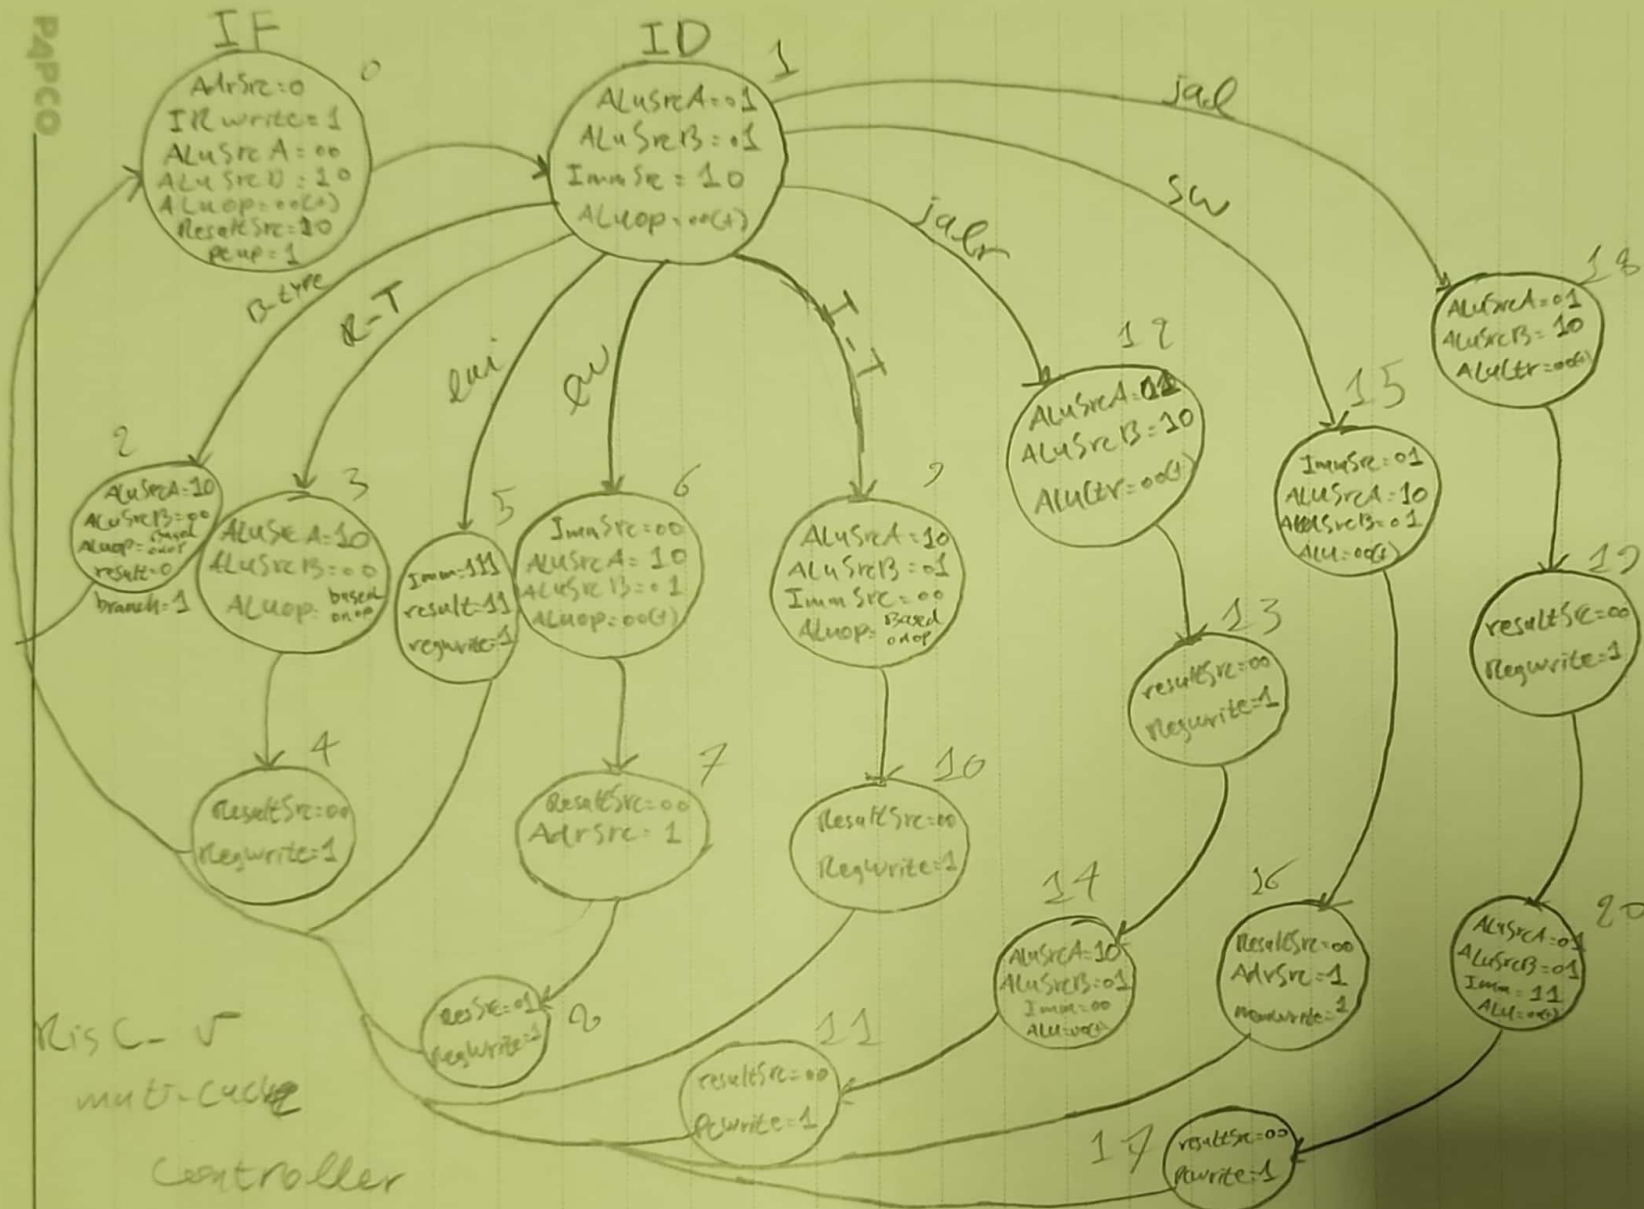 PAPCO
IF
0
AdrSrc=0
IRwrite=1
ALuSrcA=00
ALuSrcB=10
ALuop=00(+)
ResultSrc=10
pcup=1
ID
1
ALuSrcA=01
ALuSrcB=01
ImmSrc=10
ALuop=00(+)
B-type
R-T
lui
lw
I-T
jalr
sw
jal
2
ALuSrcA=10
ALuSrcB=00
ALuop=Based
onop
result=0
branch=1
3
ALuSrcA=10
ALuSrcB=00
ALuop=based
onop
4
ResultSrc=00
RegWrite=1
5
Imm=111
result=11
regwrite=1
6
ImmSrc=00
ALuSrcA=10
ALuSrcB=01
ALuop=00(+)
7
ResultSrc=00
AdrSrc=1
ResSrc=01
RegWrite=1
9
ALuSrcA=10
ALuSrcB=01
ImmSrc=00
ALuop=Based
onop
10
ResultSrc=00
RegWrite=1
11
resultSrc=00
Pcwrite=1
12
ALuSrcA=01
ALuSrcB=10
ALuCtr=00(+)
13
resultSrc=00
Regwrite=1
14
ALuSrcA=10
ALuSrcB=01
Imm=00
ALU=00(+)
15
ImmSrc=01
ALuSrcA=10
ALuSrcB=01
ALU=00(+)
16
ResultSrc=00
AdrSrc=1
memwrite=1
17
resultSrc=00
Pcwrite=1
18
ALuSrcA=01
ALuSrcB=10
ALuCtr=00(+)
19
resultSrc=00
RegWrite=1
20
ALuSrcA=01
ALuSrcB=01
Imm=11
ALU=00(+)
RisC-V
controller